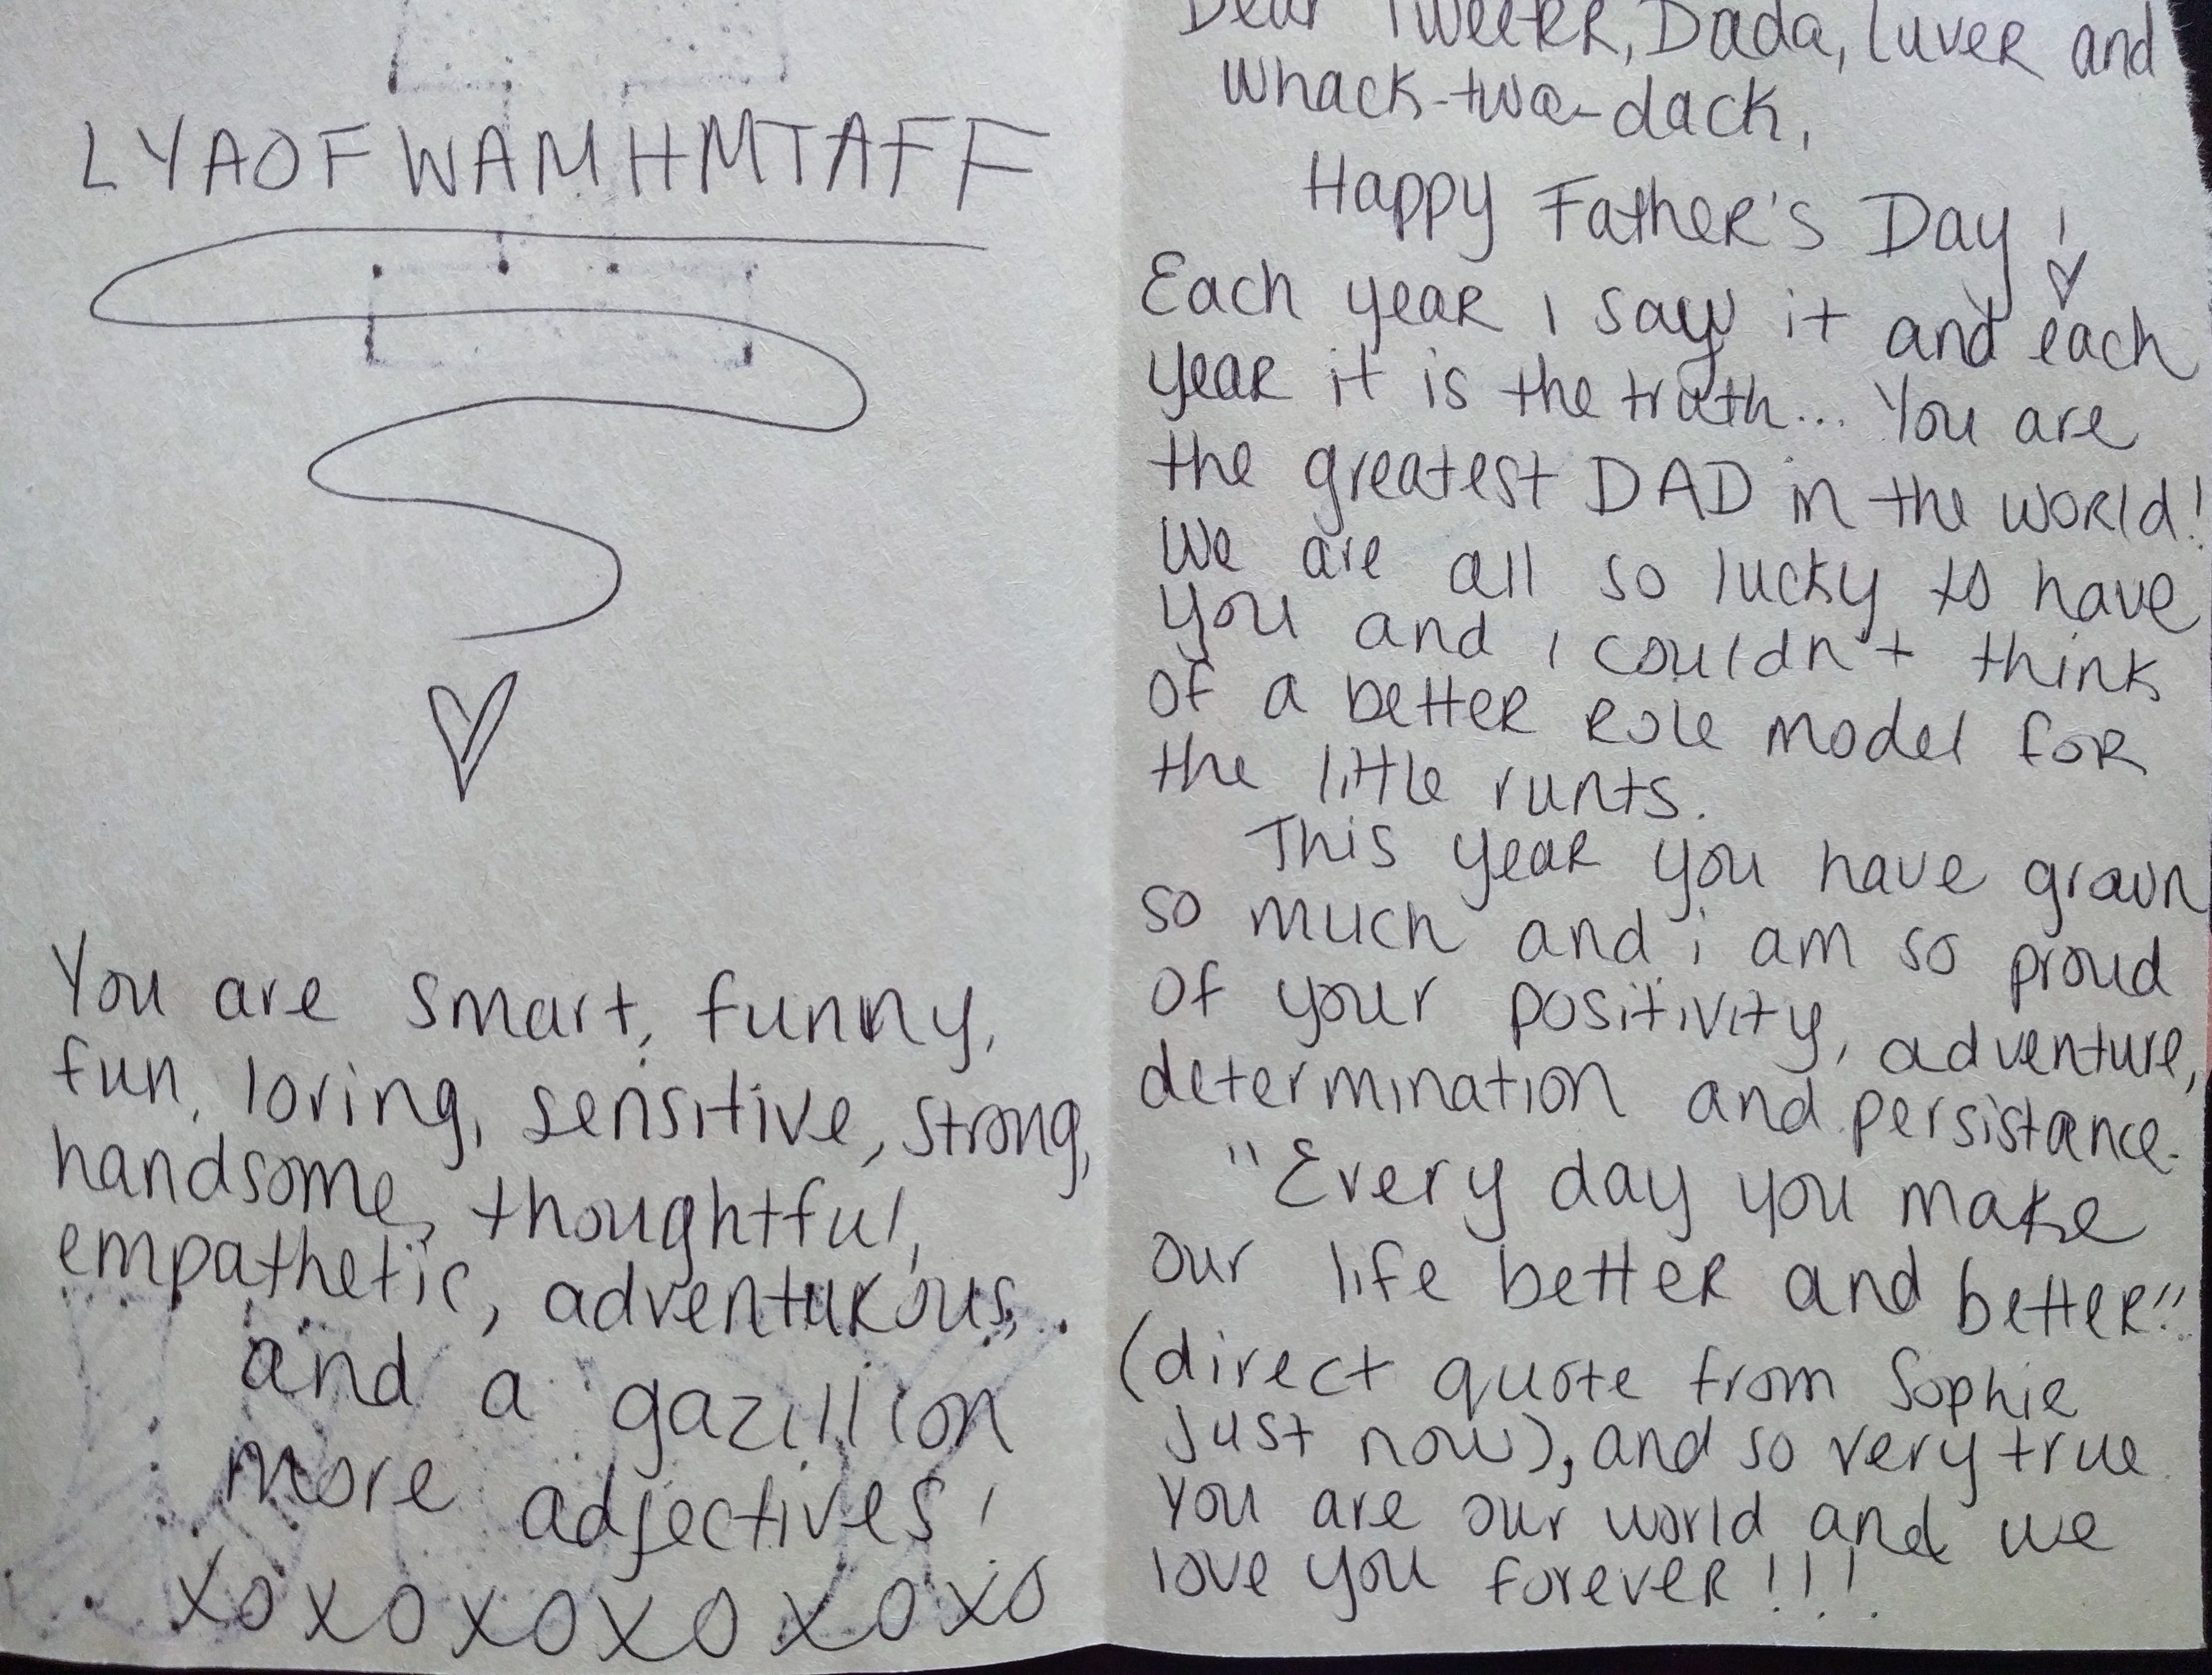 LYAOFWAMHMTAFF
You are smart, funny,
fun, loving, sensitive, strong,
handsome, thoughtful,
empathetic, adventurous,
and a gazillion
more adjectives!
XOXOXOXOXOXO
Dear Tweeter, Dada, Luver and
whack-twa-dack,
Happy Father's Day!
Each year I say it and each
year it is the truth... You are
the greatest DAD in the world!
We are all so lucky to have
you and I couldn't think
of a better role model for
the little runts.
This year you have grown
so much and i am so proud
of your positivity, adventure,
determination and persistance.
"Every day you make
our life better and better"
(direct quote from Sophie
just now), and so very true.
You are our world and we
love you forever!!!